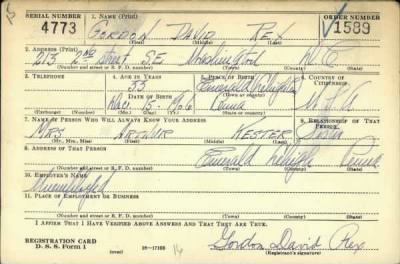 SERIAL NUMBER 1. NAME (Print) ORDER NUMBER
4773 GORDON DAVID REX 1589
(First) (Middle) (Last)
2. ADDRESS (Print)
213 2nd Street S.E. Washington D.C.
(Number and street or R. F. D. number) (Town) (County) (State)
3. TELEPHONE 4. AGE IN YEARS 5. PLACE OF BIRTH 6. COUNTRY OF CITIZENSHIP
33
DATE OF BIRTH (Town or county)
15 1906 Penna U.S.A.
(Exchange) (Number) (Mo.) (Day) (Yr.) (State or country)
7. NAME OF PERSON WHO WILL ALWAYS KNOW YOUR ADDRESS 8. RELATIONSHIP OF THAT PERSON
MRS ARTHUR KESTER Sister
(Mr., Mrs., Miss) (First) (Middle) (Last)
9. ADDRESS OF THAT PERSON
Emerald Penna
(Number and street or R. F. D. number) (Town) (County) (State)
10. EMPLOYER'S NAME
Unemployed
11. PLACE OF EMPLOYMENT OR BUSINESS
(Number and street or R. F. D. number) (Town) (County) (State)
I AFFIRM THAT I HAVE VERIFIED ABOVE ANSWERS AND THAT THEY ARE TRUE.
REGISTRATION CARD
D. S. S. Form 1 16 Gordon David Rex
(Registrant's signature)